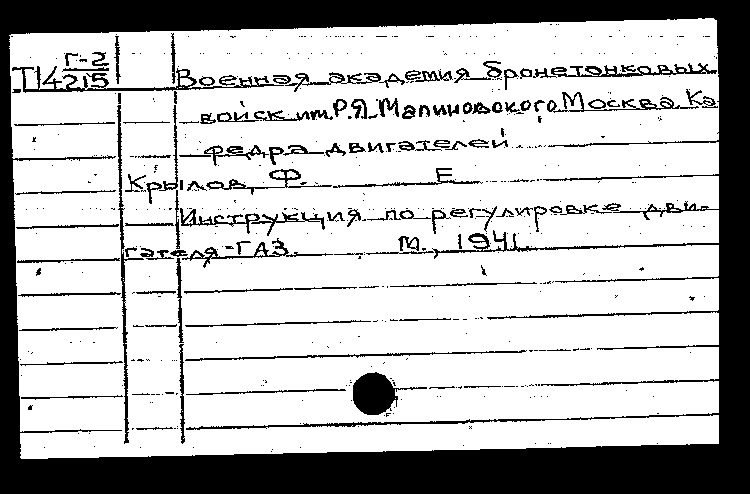 Т14 Г-2/215 Военная академия бронетанковых
войск им. Р.Я. Малиновского Москва. Ка
федра двигателей.
Крылов, Ф. Е
Инструкция по регулировке дви-
гателя-ГАЗ. М., 1941.